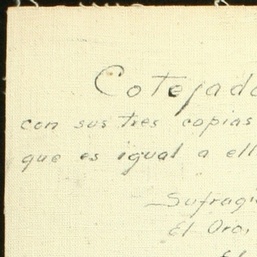 Cotejado
con sus tres copias
que es igual a ell
Sufragi
El Oro,
El